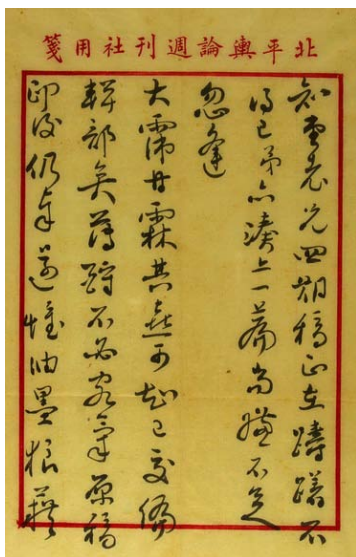 北平輿論週刊社用箋
知堂老兄四期稿正在躊躇不
得已弟亦湊上一篇尚嫌不足
忽逢
大霈甘霖其喜可知已交編
輯部矣薄酬不必客氣原稿
印後仍奉還惟油墨狼藉